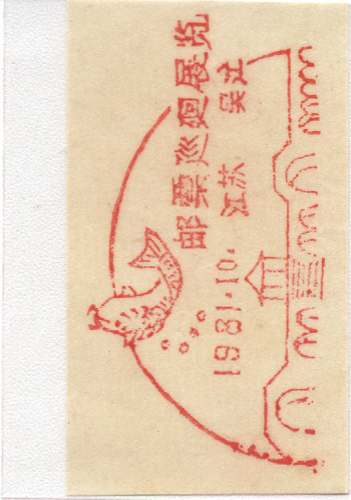 邮票巡廻展览
江苏 吴江
1981.10.